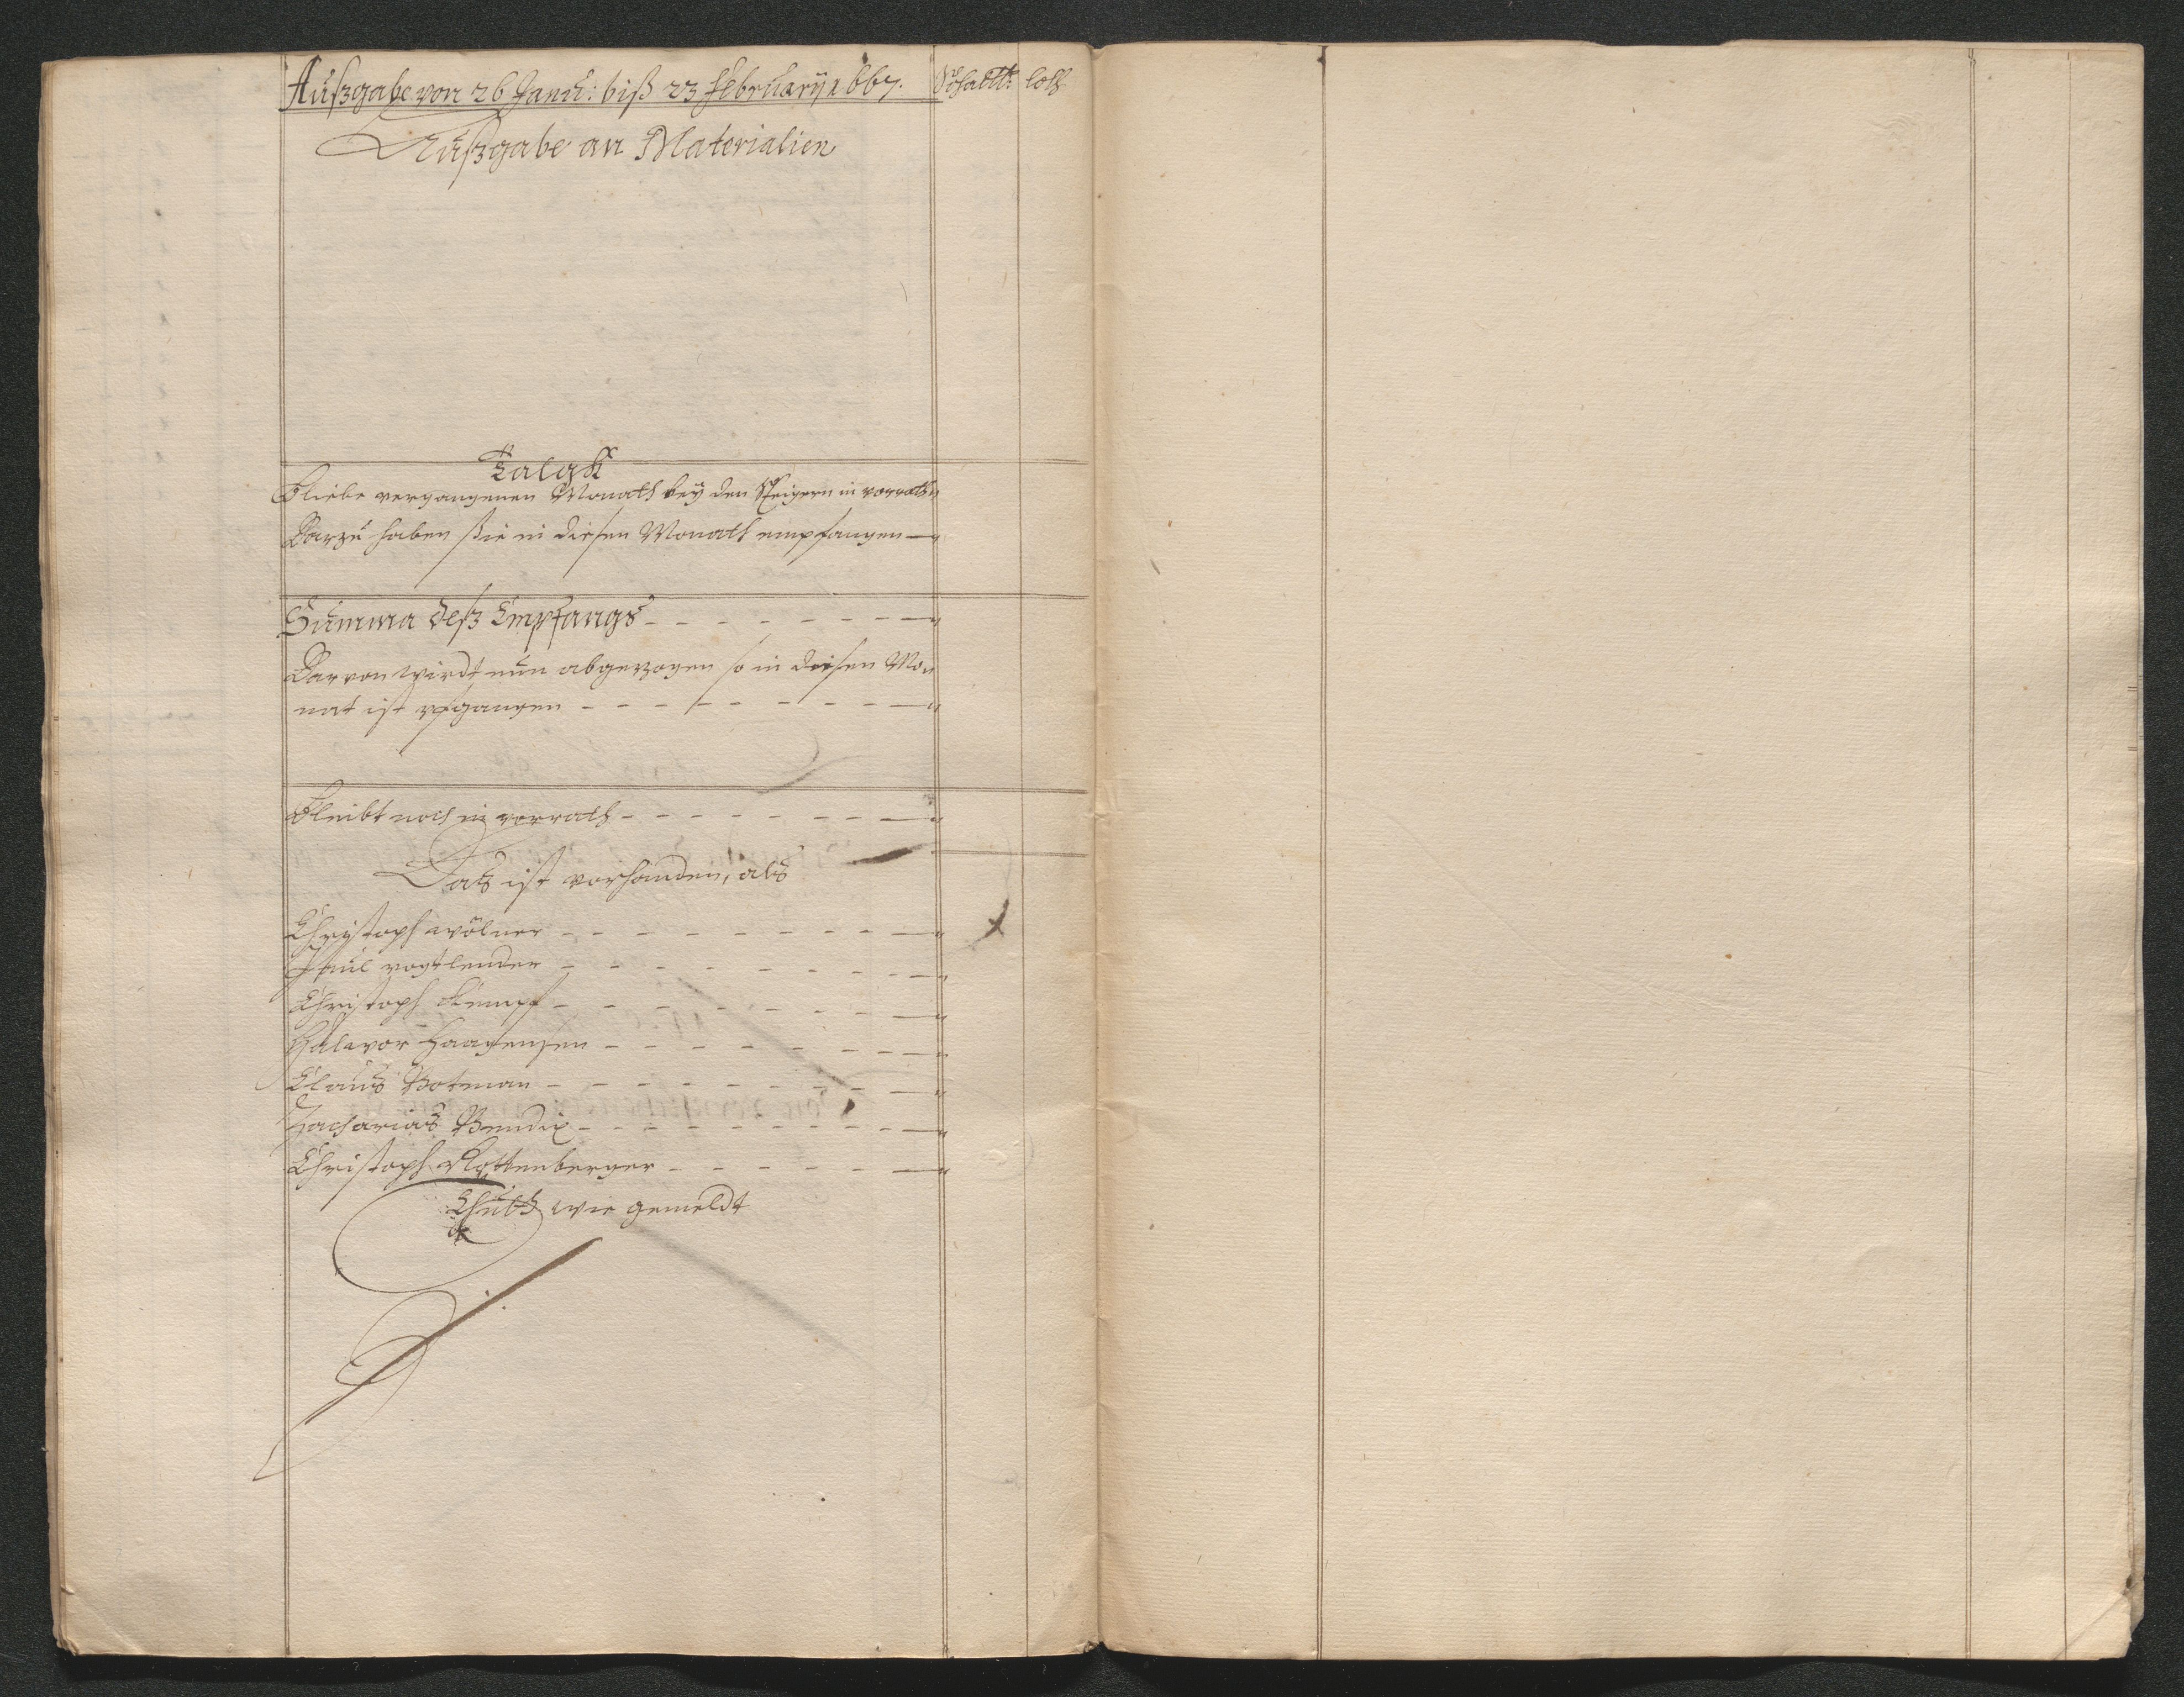 Außgabe von 26 Janu: biß 23 februarij 1667. Schaltt: loth
Außgabe an Materialien
Talgk
Bliebe vergangenen Monath bey den Steigern in vorrath
Darzu haben sie in diesen Monath empfangen
Summa deß Empfangs
Darvon wirdt nun abgezogen so in diesen Mo
nat ist ufgangen
Bleibt noch in vorrath
Das ist vorhanden, als
Christoph wölner
Paul vogtlender
Christoph Kempf
Halavor Haagensen
Clauß Botman
Zacharias Bendix
Christoph Rottenberger
Thutt wie gemeldt